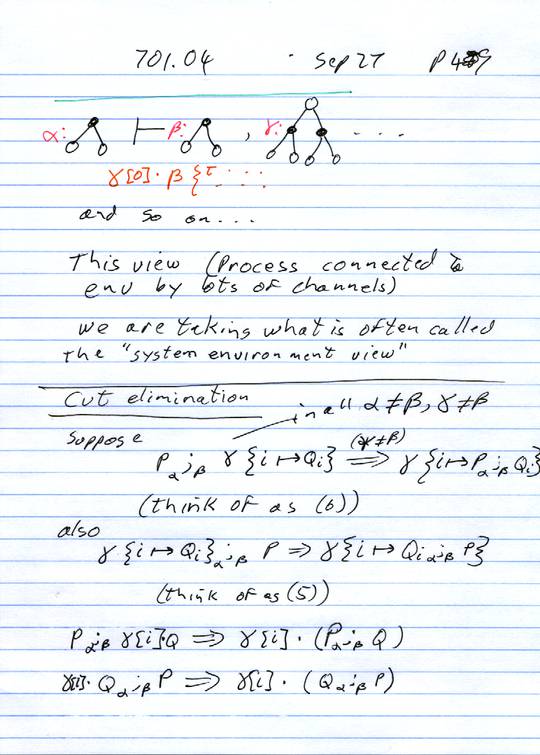 701.04 Sep 27 P 49
α: ⊢ β: , γ: ....
γ[0]·β{τ .....
and so on...
This view (Process connected to
env by lots of channels)
we are taking what is often called
the "system environment view"
Cut elimination
in all α≠β, γ≠β
Suppose
P α;β γ{i ↦ Qi} ⟹ γ{i ↦ P α;β Qi}
(γ≠β)
(think of as (6))
also
γ{i ↦ Qi} α;β P ⟹ γ{i ↦ Qi α;β P}
(think of as (5))
P α;β γ[i]·Q ⟹ γ[i]·(P α;β Q)
γ[i]·Q α;β P ⟹ γ[i]·(Q α;β P)